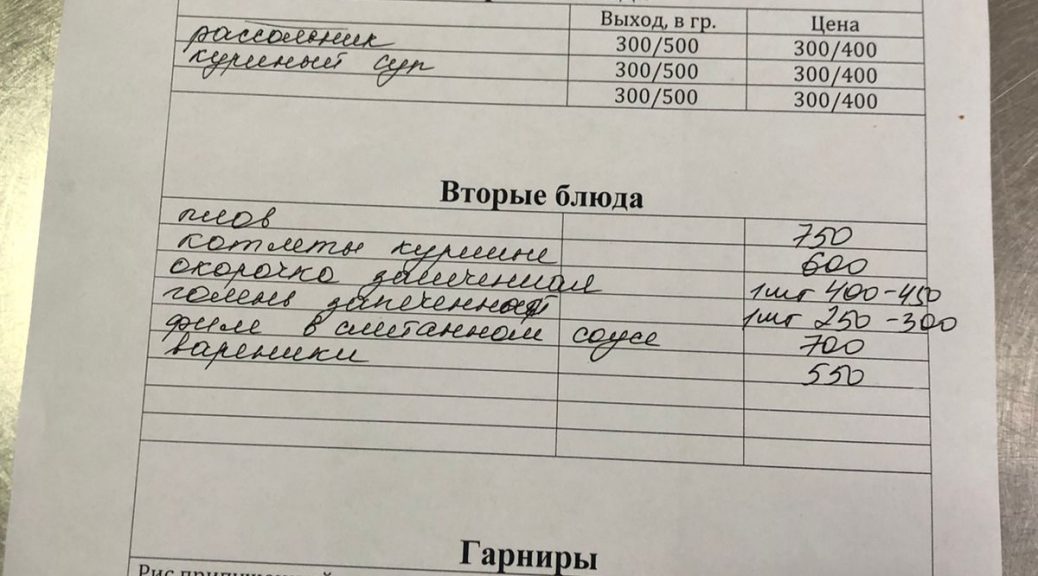 Выход, в гр. Цена
рассольник 300/500 300/400
куриный суп 300/500 300/400
300/500 300/400
Вторые блюда
плов 750
котлеты курине 600
окорочка запеченная 1шт 400-450
голень запеченная 1шт 250-300
филе в сметанном соусе 700
вареники 550
Гарниры
Рис